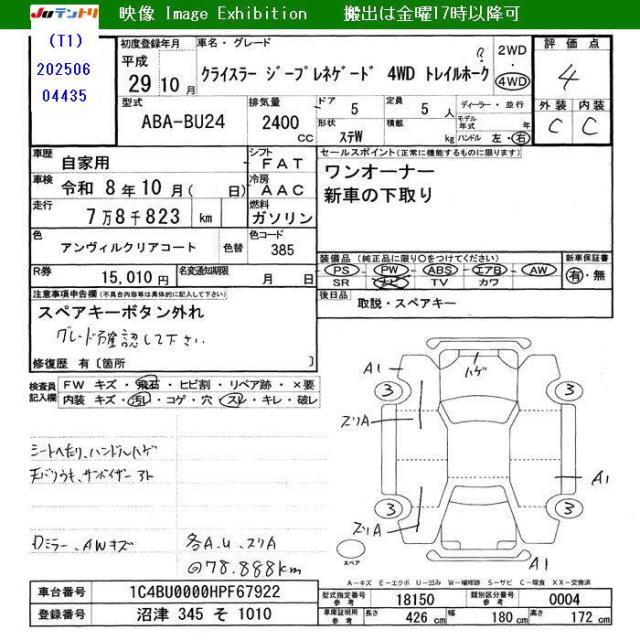 JUテントリ 映像 Image Exhibition 搬出は金曜17時以降可
(T1)
202506
04435
初度登録年月
平成
29 10月
車名・グレード
クライスラー ジープレネゲード 4WD トレイルホーク
2WD
・
4WD
評価点
4
外装 内装
C C
型式
ABA-BU24
排気量
2400
CC
ドア
5
定員
5 人
形状
ステW
積載
kg
ディーラー・並行
モデル年式 年
ハンドル 左・右
車歴
自家用
シフト
FAT
セールスポイント(正常に機能するものに限ります)
ワンオーナー
新車の下取り
車検
令和 8年 10月( 日)
冷房
AAC
走行
7万8千823 km
燃料
ガソリン
色
アンヴィルクリアコート
色替
色コード
385
装備品(純正品に限り○をつけてください)
PS ・ PW ・ ABS ・ エアB ・ AW
SR ナビ TV カワ
新車保証書
有・無
R券
15,010円
名変通知期限
月 日
後日品
取説・スペアキー
注意事項申告欄(不具合内容等は具体的に記入して下さい)
スペアキーボタン外れ
グレード確認して下さい
修復歴 有〔箇所 〕
検査員記入欄
FW キズ・飛石・ヒビ割・リペア跡・×要
内装 キズ・汚レ・コゲ・穴・スレ・キレ・破レ
シートへたり、ハンドルハゲ
天バリウキ、サンバイザー
ロミラー、AWキズ
各A.U、スリA
@78.888km
A1
ハゲ
3
3
スリA
A1
3
3
スリA
A1
スペア
A-キズ E-エクボ U-凹み W-補修跡 S-サビ C-腐食 XX-交換済
車台番号
1C4BU0000HPF67922
登録番号
沼津 345 そ 1010
型式指定番号
参考
18150
類別区分番号
参考
0004
車庫証明用
参考
長さ
426 cm
幅
180 cm
高さ
172 cm